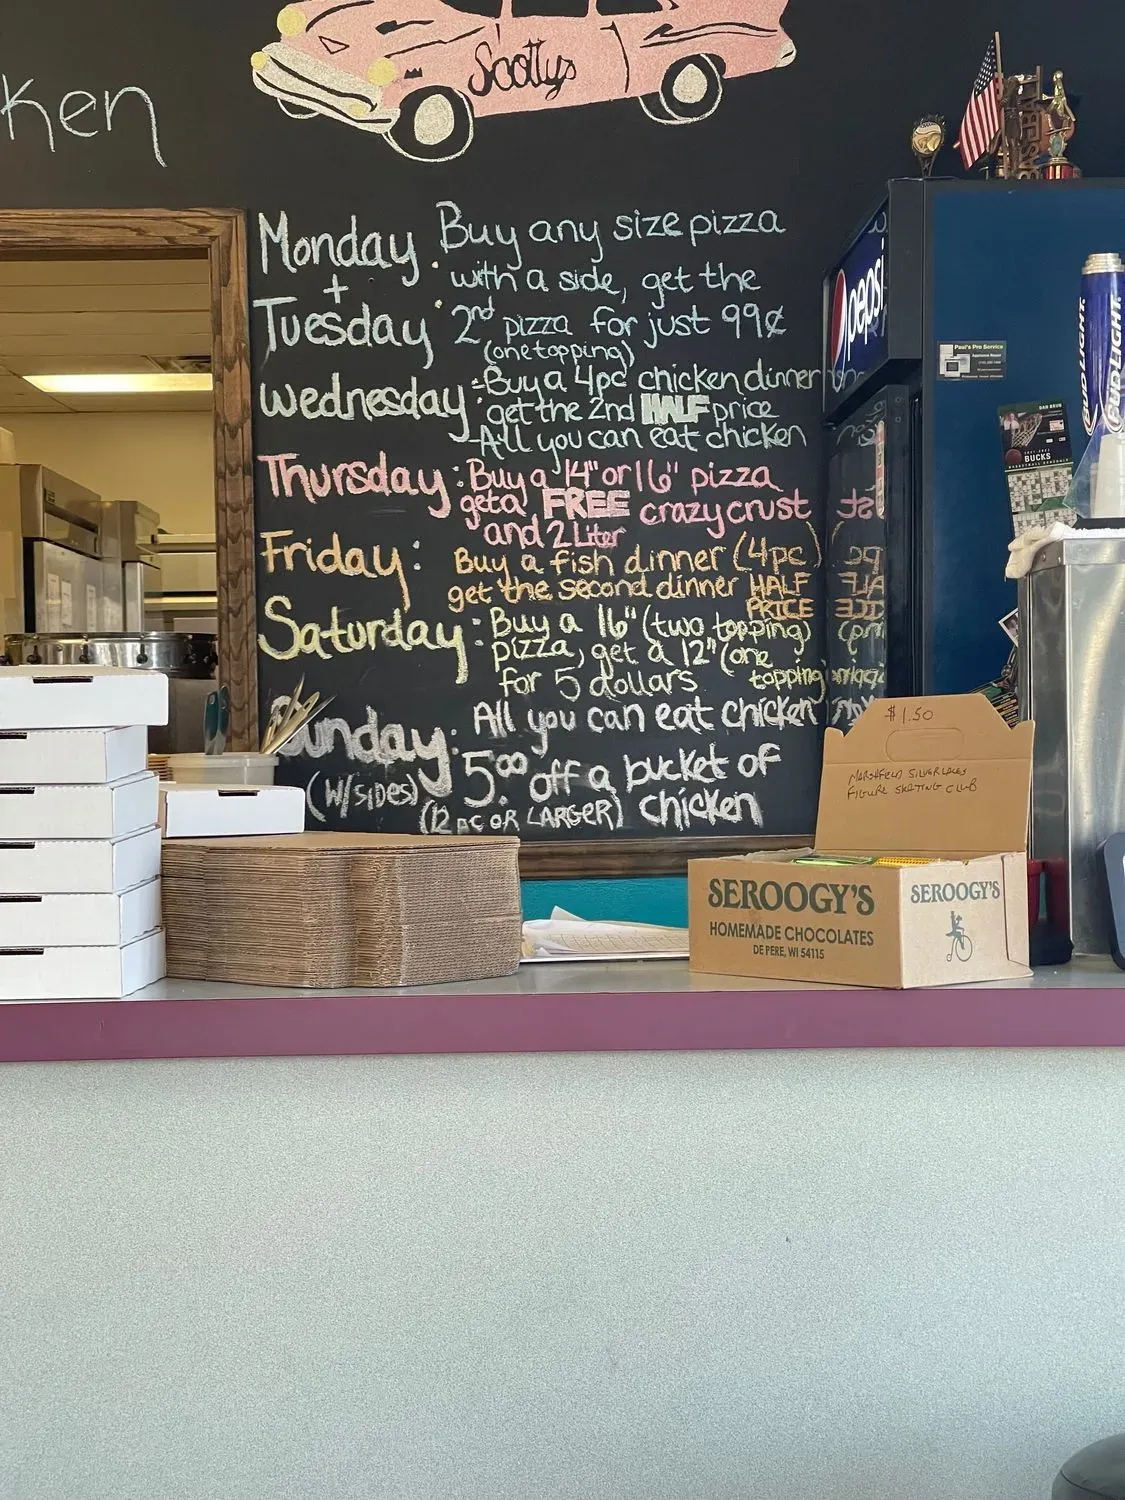 Scottys
ken
Monday + Tuesday : Buy any size pizza
with a side, get the
2nd pizza for just 99¢
(one topping)
Wednesday : -Buy a 4pc chicken dinner
get the 2nd HALF price
-All you can eat chicken
Thursday : Buy a 14" or 16" pizza
get a FREE crazy crust
and 2 Liter
Friday : Buy a fish dinner (4pc)
get the second dinner HALF
PRICE
Saturday : Buy a 16" (two topping)
pizza, get a 12" (one
topping)
for 5 dollars
Sunday : All you can eat chicken
(W/SIDES) 5.00 off a bucket of
(12 pc OR LARGER) chicken
pepsi
Paul's Pro Service
BUCKS
BUD LIGHT
BUD LIGHT
$1.50
MARSHFIELD SILVERLACES
FIGURE SKATING CLUB
SEROOGY'S
HOMEMADE CHOCOLATES
DE PERE, WI 54115
SEROOGY'S